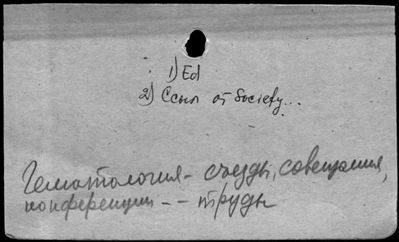 1) Ed
2) Ссыл от Society...
Гематология - съезды, совещания,
конференции - - труды